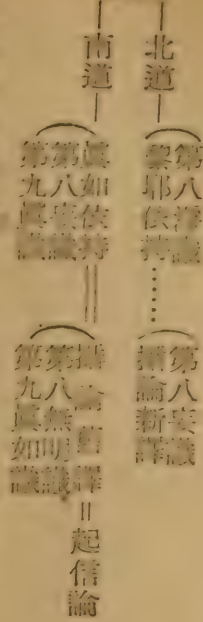 北道
第八淨識
黎耶依持
第八妄識
攝論新譯
南道
眞如依持
第八妄識
第九眞識
攝論舊譯＝起信論
第八無明識
第九眞如識